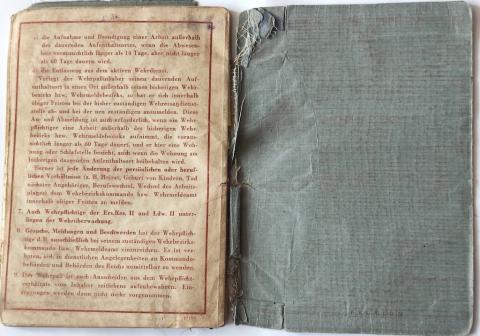 c) die Aufnahme und Beendigung einer Arbeit außerhalb
des dauernden Aufenthaltsortes, wenn die Abwesen-
heit voraussichtlich länger als 14 Tage, aber nicht länger
als 60 Tage dauern wird.
d) die Entlassung aus dem aktiven Wehrdienst.
Verlegt der Wehrpaßinhaber seinen dauernden Auf-
enthaltsort in einen Ort außerhalb seines bisherigen Wehr-
bezirks bzw. Wehrmeldebezirks, so hat er sich innerhalb
obiger Fristen bei der bisher zuständigen Wehrersatzdienst-
stelle ab- und bei der neu zuständigen anzumelden. Diese
An- und Abmeldung ist auch erforderlich, wenn ein Wehr-
pflichtiger eine Arbeit außerhalb des bisherigen Wehr-
bezirks bzw. Wehrmeldebezirks aufnimmt, die voraus-
sichtlich länger als 60 Tage dauert, und er hier eine Woh-
nung oder Schlafstelle bezieht, auch wenn die Wohnung am
bisherigen dauernden Aufenthaltsort beibehalten wird.
Ferner ist jede Änderung der persönlichen oder beruf-
lichen Verhältnisse (z. B. Heirat, Geburt von Kindern, Tod
nächster Angehöriger, Berufswechsel, Wechsel des Arbeits-
platzes) dem Wehrbezirkskommando bzw. Wehrmeldeamt
innerhalb obiger Fristen zu melden.
7. Auch Wehrpflichtige der Ers. Res. II und Ldw. II unter-
liegen der Wehrüberwachung.
8. Gesuche, Meldungen und Beschwerden hat der Wehrpflich-
tige d. B. ausschließlich bei seinem zuständigen Wehrbezirks-
kommando bzw. Wehrmeldeamt einzureichen. Es ist ver-
boten, sich in dienstlichen Angelegenheiten an Kommando-
behörden und Behörden des Reichs unmittelbar zu wenden.
9. Der Wehrpaß ist auch Ausscheiden aus dem Wehrpflicht-
verhältnis vom Inhaber zeitlebens aufzubewahren. Ein-
tragungen werden dann nicht mehr vorgenommen.